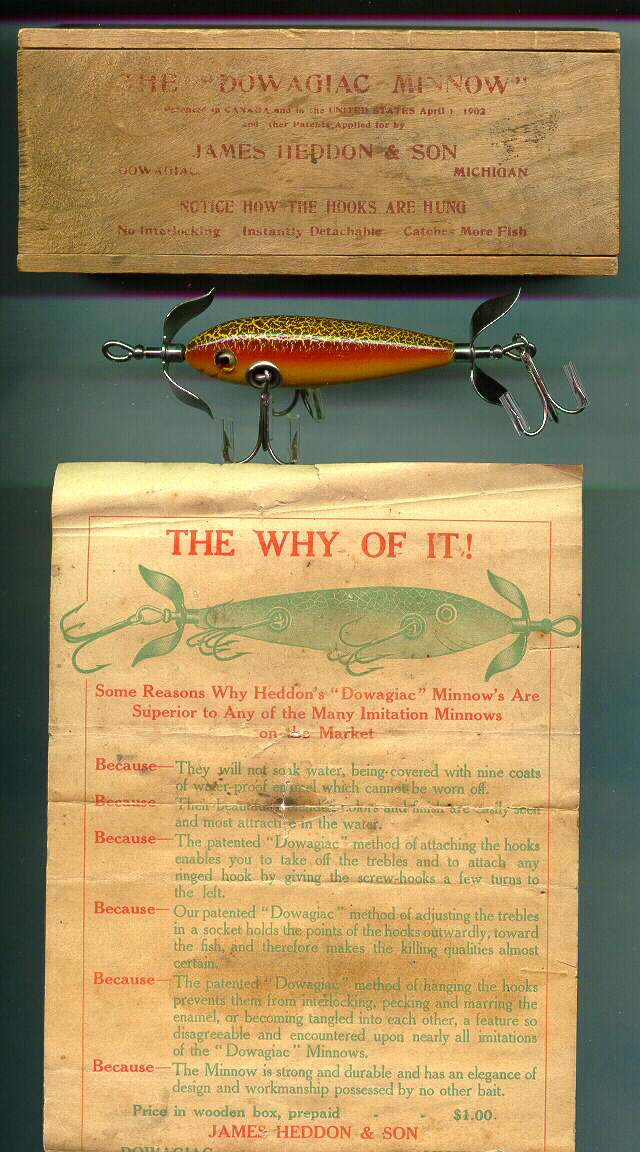 THE "DOWAGIAC MINNOW"
Patented in CANADA and in the UNITED STATES April 1 1902
and other Patents Applied for by
JAMES HEDDON & SON
DOWAGIAC MICHIGAN
NOTICE HOW THE HOOKS ARE HUNG
No Interlocking Instantly Detachable Catches More Fish
THE WHY OF IT!
Some Reasons Why Heddon's "Dowagiac" Minnow's Are
Superior to Any of the Many Imitation Minnows
on the Market
Because—They will not soak water, being covered with nine coats
of water-proof enamel which cannot be worn off.
Because—Their beautiful colors and finish are easily seen
and most attractive in the water.
Because—The patented "Dowagiac" method of attaching the hooks
enables you to take off the trebles and to attach any
ringed hook by giving the screw-hooks a few turns to
the left.
Because—Our patented "Dowagiac" method of adjusting the trebles
in a socket holds the points of the hooks outwardly, toward
the fish, and therefore makes the killing qualities almost
certain.
Because—The patented "Dowagiac" method of hanging the hooks
prevents them from interlocking, pecking and marring the
enamel, or becoming tangled into each other, a feature so
disagreeable and encountered upon nearly all imitations
of the "Dowagiac" Minnows.
Because—The Minnow is strong and durable and has an elegance of
design and workmanship possessed by no other bait.
Price in wooden box, prepaid - - $1.00.
JAMES HEDDON & SON
DOWAGIAC